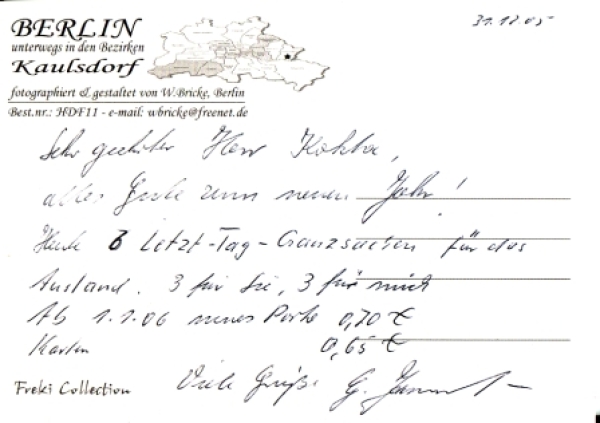 BERLIN
unterwegs in den Bezirken
Kaulsdorf
fotographiert & gestaltet von W.Bricke, Berlin
Best.nr.: HDF11 - e-mail: wbricke@freenet.de
31.12.05
Sehr geehrter Herr
alles Gute zum neuen Jahr!
Heute 6 Letzt-Tag-Ganzsachen für das
Ausland. 3 für Sie, 3 für mich
Ab 1.1.06 neues Porto 0,70 €
Karten 0,65 €
Freki Collection
Viele Grüße G.